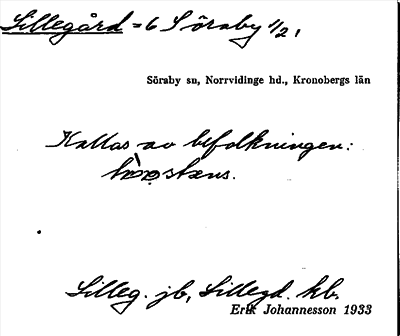 Lillegård = 6 Söraby 1/2,
Söraby sn, Norrvidinge hd., Kronobergs län
Kallas av befolkningen:
Lilleg. jb, Lillegd. kb.
Erik Johannesson 1933